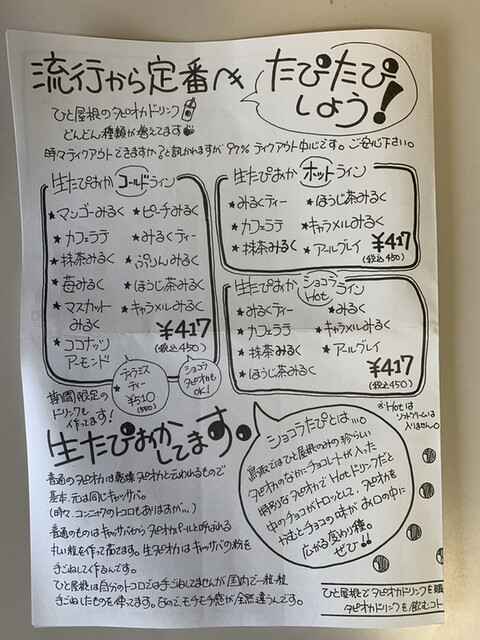 流行から定番へ
たぴたぴ
しよう!
ひと屋根のタピオカドリンク
どんどん種類が増えてます
時々テイクアウトできますか?と訊かれますが97%テイクアウト中心です。ご安心下さい。
生たぴおか コールドライン
★マンゴーみるく ★ピーチみるく
★カフェラテ ★みるくティー
★抹茶みるく ★ぷりんみるく
★苺みるく ★ほうじ茶みるく
★マスカットみるく ★キャラメルみるく
★ココナッツアーモンド
¥417
(税込450)
★ティラミスティー
¥510
(550)
ショコラタピオカもOK!
生たぴおか ホットライン
★みるくティー ★ほうじ茶みるく
★カフェラテ ★キャラメルみるく
★抹茶みるく ★アールグレイ
¥417
(税込450)
生たぴおか ショコラHotライン
★みるくティー ★みるく
★カフェラテ ★キャラメルみるく
★抹茶みるく ★アールグレイ
★ほうじ茶みるく
¥417
(税込450)
*Hotは
ソフトクリームは
入りません。
期間限定の
ドリンクも
作ってます!
生たぴおかしてます。
普通のタピオカは乾燥タピオカと云われるもので
基本、元は同じキャッサバ。
(時々、コンニャクのトコロもありますが…)
普通のものはキャッサバからタピオカパールと呼ばれる
丸い粒を作って茹でます。生タピオカはキャッサバの粉を
手ごねして作るんです。
ひと屋根は自分のトコロでは手ごねしてませんが国内で一粒一粒
手ごねしたものを使ってます。なので、モチモチ感が全然違うんです。
ショコラたぴとは…。
鳥取ではひと屋根のみの珍らしい
タピオカのなかにチョコレートが入った
特別なタピオカで Hotドリンクだと
中のチョコがトロッとして、タピオカを
かむとチョコの味がお口の中に
広がる変わり種。
ぜひ!!
ひと屋根でタピオカドリンクを
タピオカドリンクを飲むコト